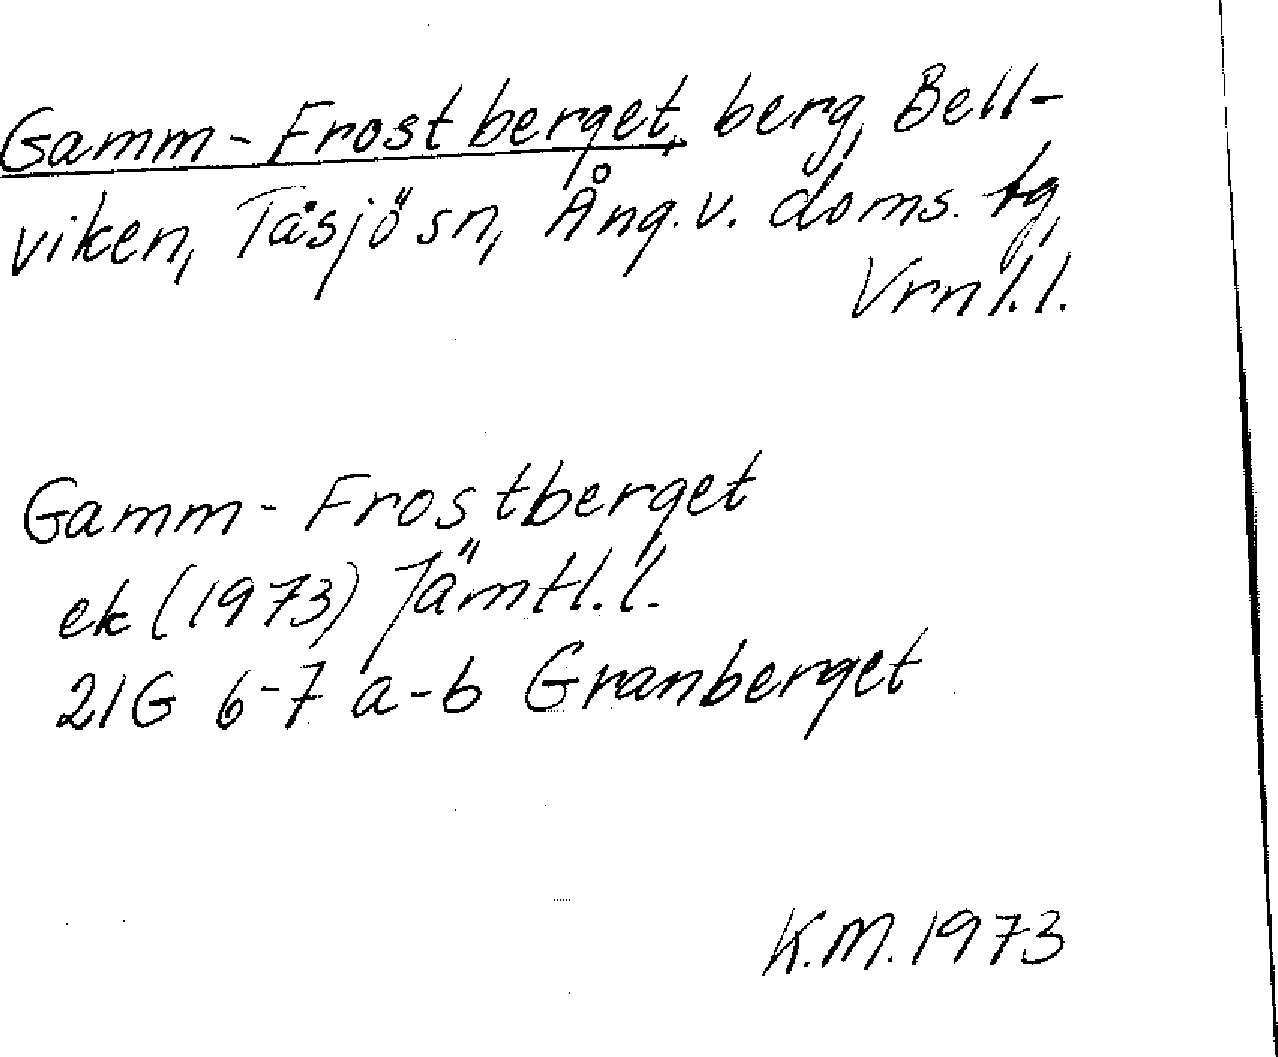 Gamm-Frostberget, berg, Bell-
viken, Tåsjö sn, Ång. v. doms. tg,
Vrnl.l.
Gamm-Frostberget
ek (1973) Jämtl.l.
21G 6-7 a-b Granberget
K.M. 1973